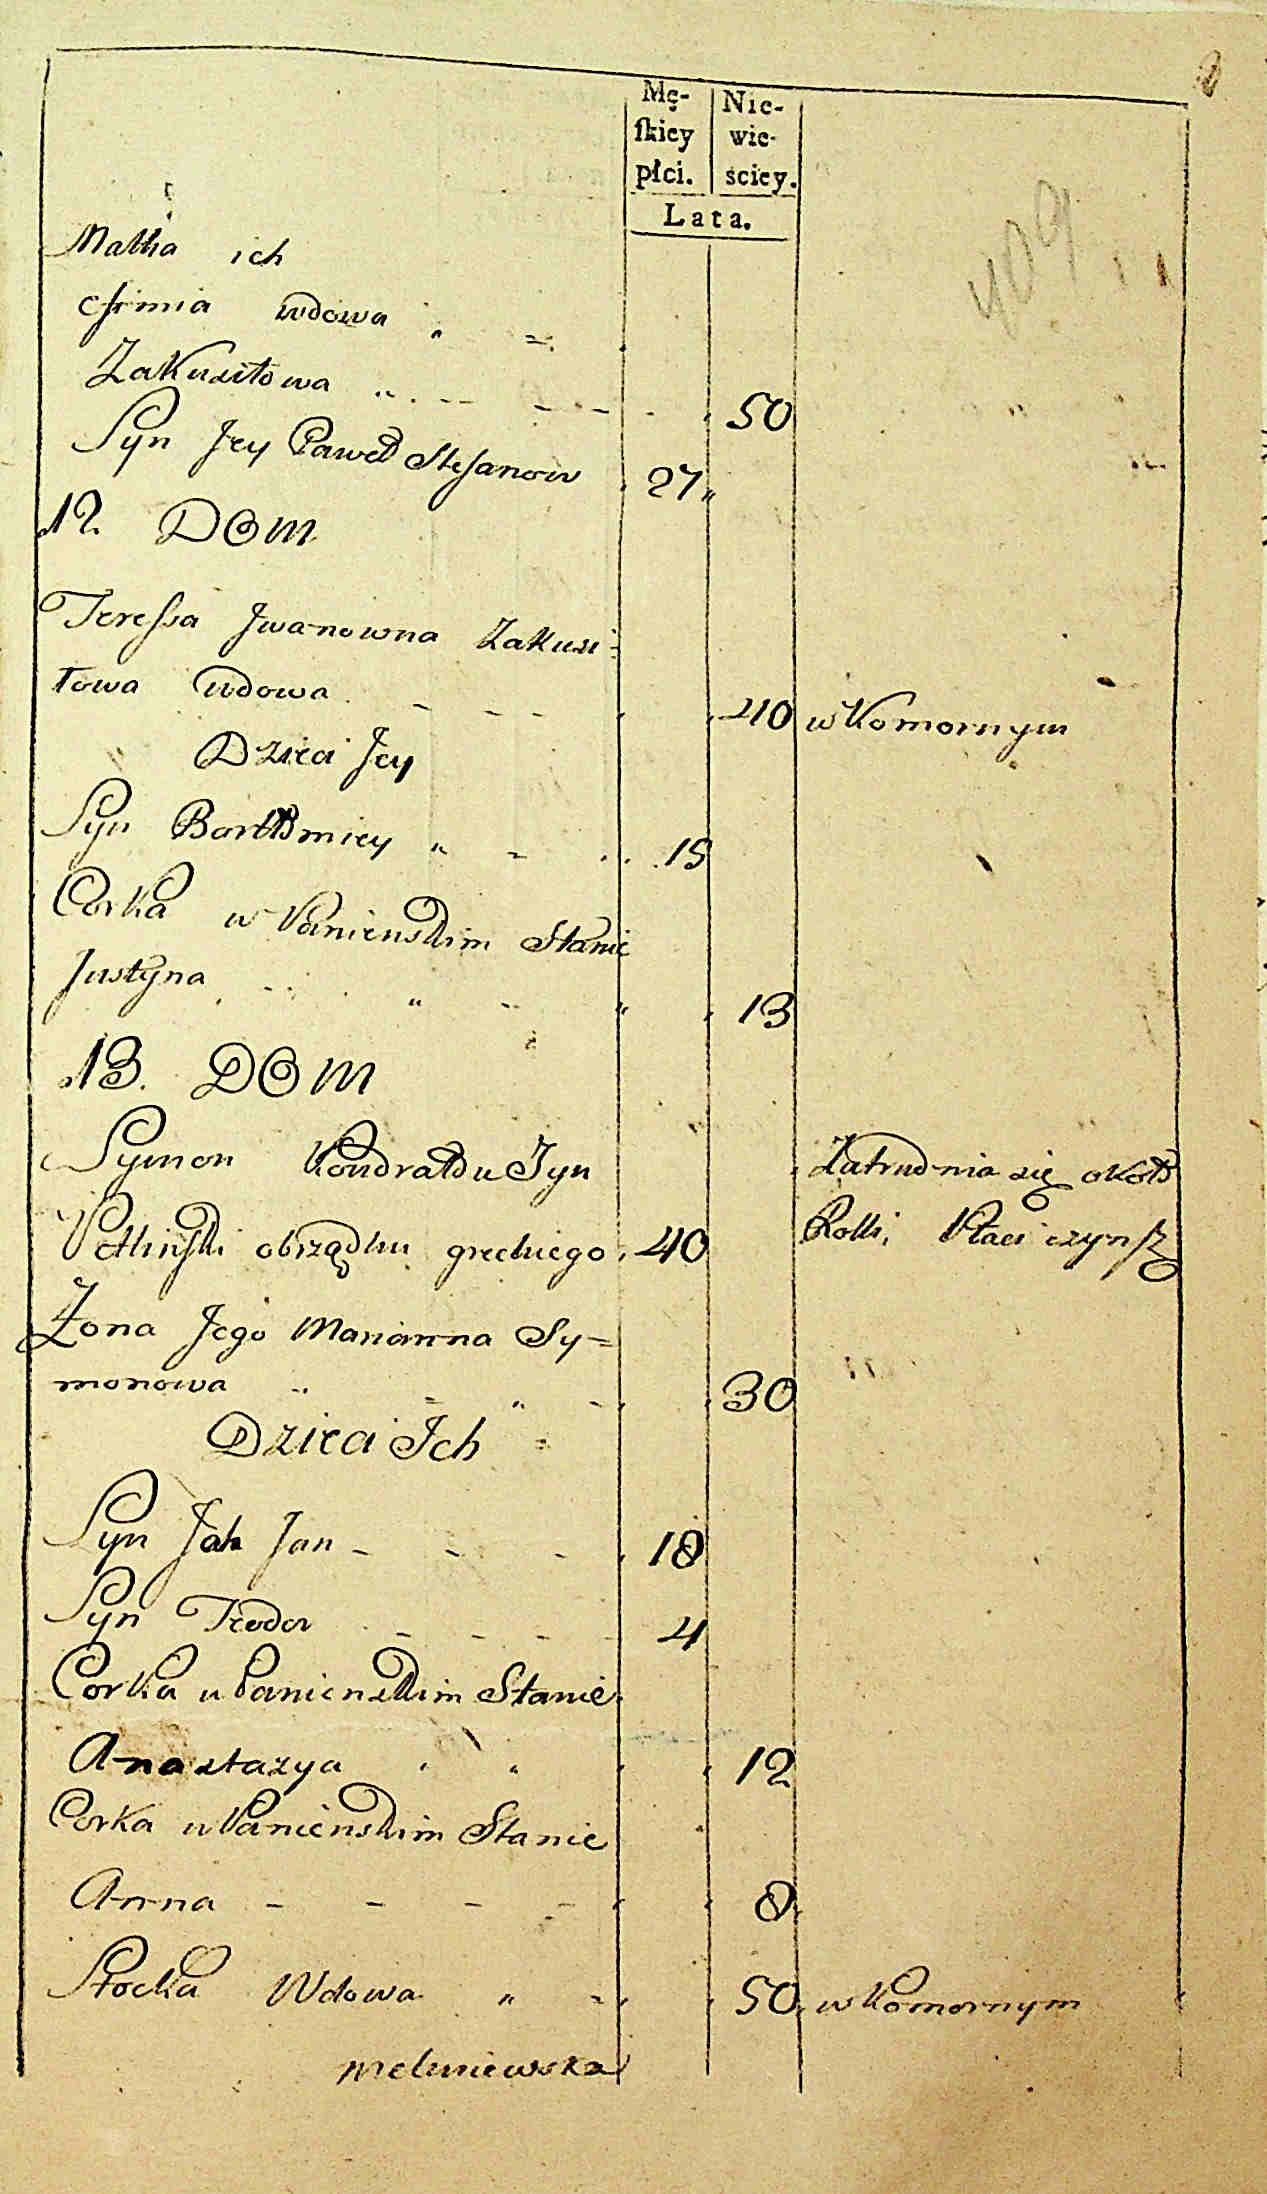 Mę-
skiey
płci.
Nie-
wie-
sciey.
Lata.
409
Matka ich
Efimia wdowa
Zakusiłowa 50
Syn Jey Paweł Stefanow 27
12. DOM
Teressa Jwanowna Zakusi=
łowa wdowa 40 w Komornym
Dzieci Jey
Syn Bartłomiey 15
Corka w Panienskim Stanie
Justyna 13
13. DOM
Symon Kondratow Syn Zatrudnia się około
obrządku greckiego 40 Rolli, Płaci czynsz
Żona Jego Marianna Sy=
monowa 30
Dzieci Jch
Syn Jch Jan 18
Syn Teodor 4
Corka w Panienskim Stanie
Anastazya 12
Corka w Panienskim Stanie
Anna 8
Wdowa 50 w Komornym